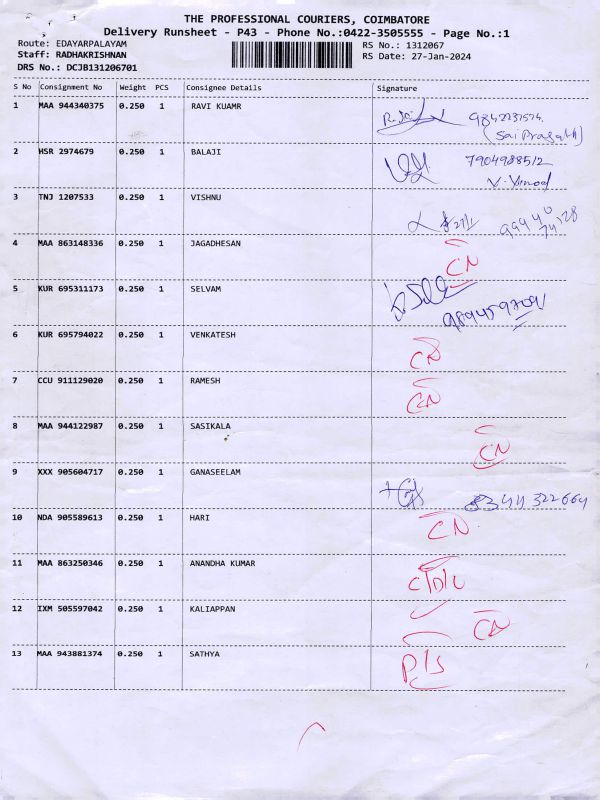 THE PROFESSIONAL COURIERS, COIMBATORE
Delivery Runsheet - P43 - Phone No.:0422-3505555 - Page No.:1
Route: EDAYARPALAYAM RS No.: 1312067
Staff: RADHAKRISHNAN RS Date: 27-Jan-2024
DRS No.: DCJB131206701
S No Consignment No Weight PCS Consignee Details Signature
1 MAA 944340375 0.250 1 RAVI KUAMR
(Sai Prasath)
2 HSR 2974679 0.250 1 BALAJI 7904988512
V. Vinod
3 TNJ 1207533 0.250 1 VISHNU
4 MAA 863148336 0.250 1 JAGADHESAN CN
5 KUR 695311173 0.250 1 SELVAM
9894597091
6 KUR 695794022 0.250 1 VENKATESH CN
7 CCU 911129020 0.250 1 RAMESH CN
8 MAA 944122987 0.250 1 SASIKALA CN
9 XXX 905604717 0.250 1 GANASEELAM 8344322664
10 NDA 905589613 0.250 1 HARI CN
11 MAA 863250346 0.250 1 ANANDHA KUMAR
12 IXM 505597042 0.250 1 KALIAPPAN CN
13 MAA 943881374 0.250 1 SATHYA P/S